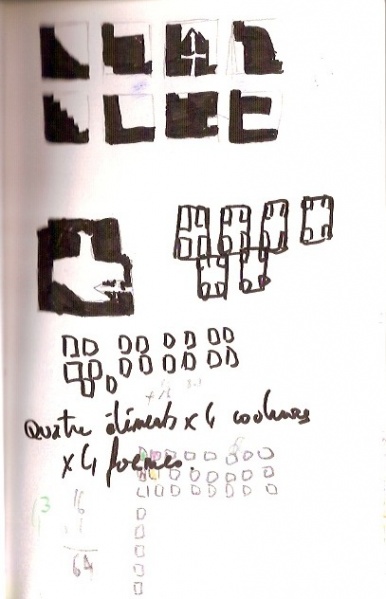 Quatre éléments x 4 couleurs
x 4 formes.
4³ 16
64